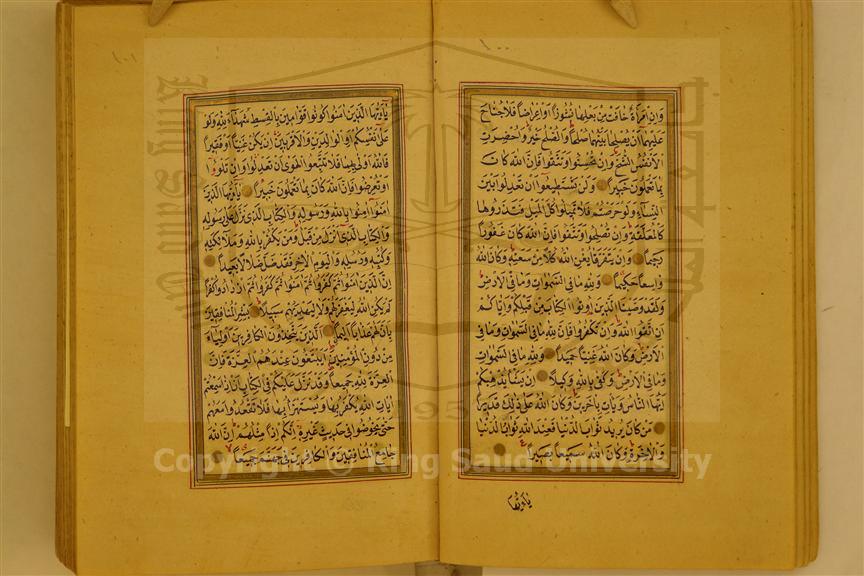 ١٠٠
وَاِنِ امْرَأَةٌ خَافَتْ مِنْ بَعْلِهَا نُشُوزًا اَوْ اِعْرَاضًا فَلَا جُنَاحَ
عَلَيْهِمَا اَنْ يُصْلِحَا بَيْنَهُمَا صُلْحًا وَالصُّلْحُ خَيْرٌ وَاُحْضِرَتِ
الْاَنْفُسُ الشُّحَّ وَاِنْ تُحْسِنُوا وَتَتَّقُوا فَاِنَّ اللهَ كَانَ
بِمَا تَعْمَلُونَ خَبِيرًا وَلَنْ تَسْتَطِيعُوا اَنْ تَعْدِلُوا بَيْنَ
النِّسَاءِ وَلَوْ حَرَصْتُمْ فَلَا تَمِيلُوا كُلَّ الْمَيْلِ فَتَذَرُوهَا
كَالْمُعَلَّقَةِ وَاِنْ تُصْلِحُوا وَتَتَّقُوا فَاِنَّ اللهَ كَانَ غَفُورًا
رَحِيمًا وَاِنْ يَتَفَرَّقَا يُغْنِ اللهُ كُلًّا مِنْ سَعَتِهِ وَكَانَ اللهُ
وَاسِعًا حَكِيمًا وَلِلّٰهِ مَا فِي السَّمٰوَاتِ وَمَا فِي الْاَرْضِ
وَلَقَدْ وَصَّيْنَا الَّذِينَ اُوتُوا الْكِتَابَ مِنْ قَبْلِكُمْ وَاِيَّاكُمْ
اَنِ اتَّقُوا اللهَ وَاِنْ تَكْفُرُوا فَاِنَّ لِلّٰهِ مَا فِي السَّمٰوَاتِ وَمَا فِي
الْاَرْضِ وَكَانَ اللهُ غَنِيًّا حَمِيدًا وَلِلّٰهِ مَا فِي السَّمٰوَاتِ
وَمَا فِي الْاَرْضِ وَكَفٰى بِاللهِ وَكِيلًا اِنْ يَشَأْ يُذْهِبْكُمْ
اَيُّهَا النَّاسُ وَيَأْتِ بِاٰخَرِينَ وَكَانَ اللهُ عَلٰى ذٰلِكَ قَدِيرًا
مَنْ كَانَ يُرِيدُ ثَوَابَ الدُّنْيَا فَعِنْدَ اللهِ ثَوَابُ الدُّنْيَا
وَالْاٰخِرَةِ وَكَانَ اللهُ سَمِيعًا بَصِيرًا
يَا اَيُّهَا
١٠١
يَا اَيُّهَا الَّذِينَ اٰمَنُوا كُونُوا قَوَّامِينَ بِالْقِسْطِ شُهَدَاءَ لِلّٰهِ وَلَوْ
عَلٰى اَنْفُسِكُمْ اَوِ الْوَالِدَيْنِ وَالْاَقْرَبِينَ اِنْ يَكُنْ غَنِيًّا اَوْ فَقِيرًا
فَاللهُ اَوْلٰى بِهِمَا فَلَا تَتَّبِعُوا الْهَوٰى اَنْ تَعْدِلُوا وَاِنْ تَلْوُوا
اَوْ تُعْرِضُوا فَاِنَّ اللهَ كَانَ بِمَا تَعْمَلُونَ خَبِيرًا يَا اَيُّهَا الَّذِينَ
اٰمَنُوا اٰمِنُوا بِاللهِ وَرَسُولِهِ وَالْكِتَابِ الَّذِي نَزَّلَ عَلٰى رَسُولِهِ
وَالْكِتَابِ الَّذِي اَنْزَلَ مِنْ قَبْلُ وَمَنْ يَكْفُرْ بِاللهِ وَمَلٰئِكَتِهِ
وَكُتُبِهِ وَرُسُلِهِ وَالْيَوْمِ الْاٰخِرِ فَقَدْ ضَلَّ ضَلَالًا بَعِيدًا
اِنَّ الَّذِينَ اٰمَنُوا ثُمَّ كَفَرُوا ثُمَّ اٰمَنُوا ثُمَّ كَفَرُوا ثُمَّ ازْدَادُوا كُفْرًا
لَمْ يَكُنِ اللهُ لِيَغْفِرَ لَهُمْ وَلَا لِيَهْدِيَهُمْ سَبِيلًا بَشِّرِ الْمُنَافِقِينَ
بِاَنَّ لَهُمْ عَذَابًا اَلِيمًا الَّذِينَ يَتَّخِذُونَ الْكَافِرِينَ اَوْلِيَاءَ
مِنْ دُونِ الْمُؤْمِنِينَ اَيَبْتَغُونَ عِنْدَهُمُ الْعِزَّةَ فَاِنَّ
الْعِزَّةَ لِلّٰهِ جَمِيعًا وَقَدْ نَزَّلَ عَلَيْكُمْ فِي الْكِتَابِ اَنْ اِذَا سَمِعْتُمْ
اٰيَاتِ اللهِ يُكْفَرُ بِهَا وَيُسْتَهْزَأُ بِهَا فَلَا تَقْعُدُوا مَعَهُمْ
حَتّٰى يَخُوضُوا فِي حَدِيثٍ غَيْرِهِ اِنَّكُمْ اِذًا مِثْلُهُمْ اِنَّ اللهَ
جَامِعُ الْمُنَافِقِينَ وَالْكَافِرِينَ فِي جَهَنَّمَ جَمِيعًا
Copyright © King Saud University